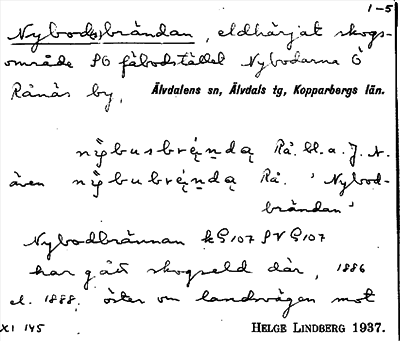 1-5
Nybod(s)brändan, eldhärjat skogs-
område SO fäbodstället Nybodarna Ö
Rånås by, Älvdalens sn, Älvdals tg, Kopparbergs län.
Rå. bl. a. J. N.
även Rå. 'Nybod-
brändan'
Nybodbrännan kG107 SV G107
har gått skogseld där, 1886
el. 1888, öster om landsvägen mot
XI 145 HELGE LINDBERG 1937.